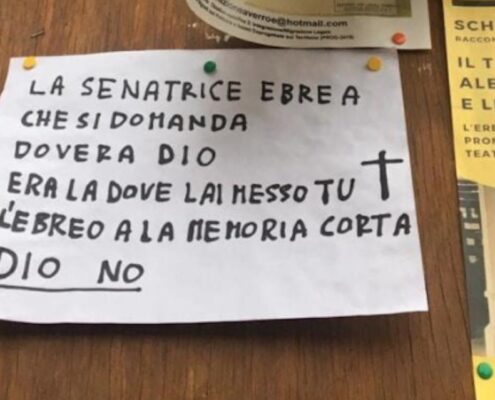 averroe@hotmail.com
LA SENATRICE EBREA
CHE SI DOMANDA
DOVERA DIO
ERA LA DOVE LAI MESSO TU
L'EBREO A LA MEMORIA CORTA
DIO NO
SCH
RACCON
IL T
ALE
E L
L'ERE
PRO
TEAT